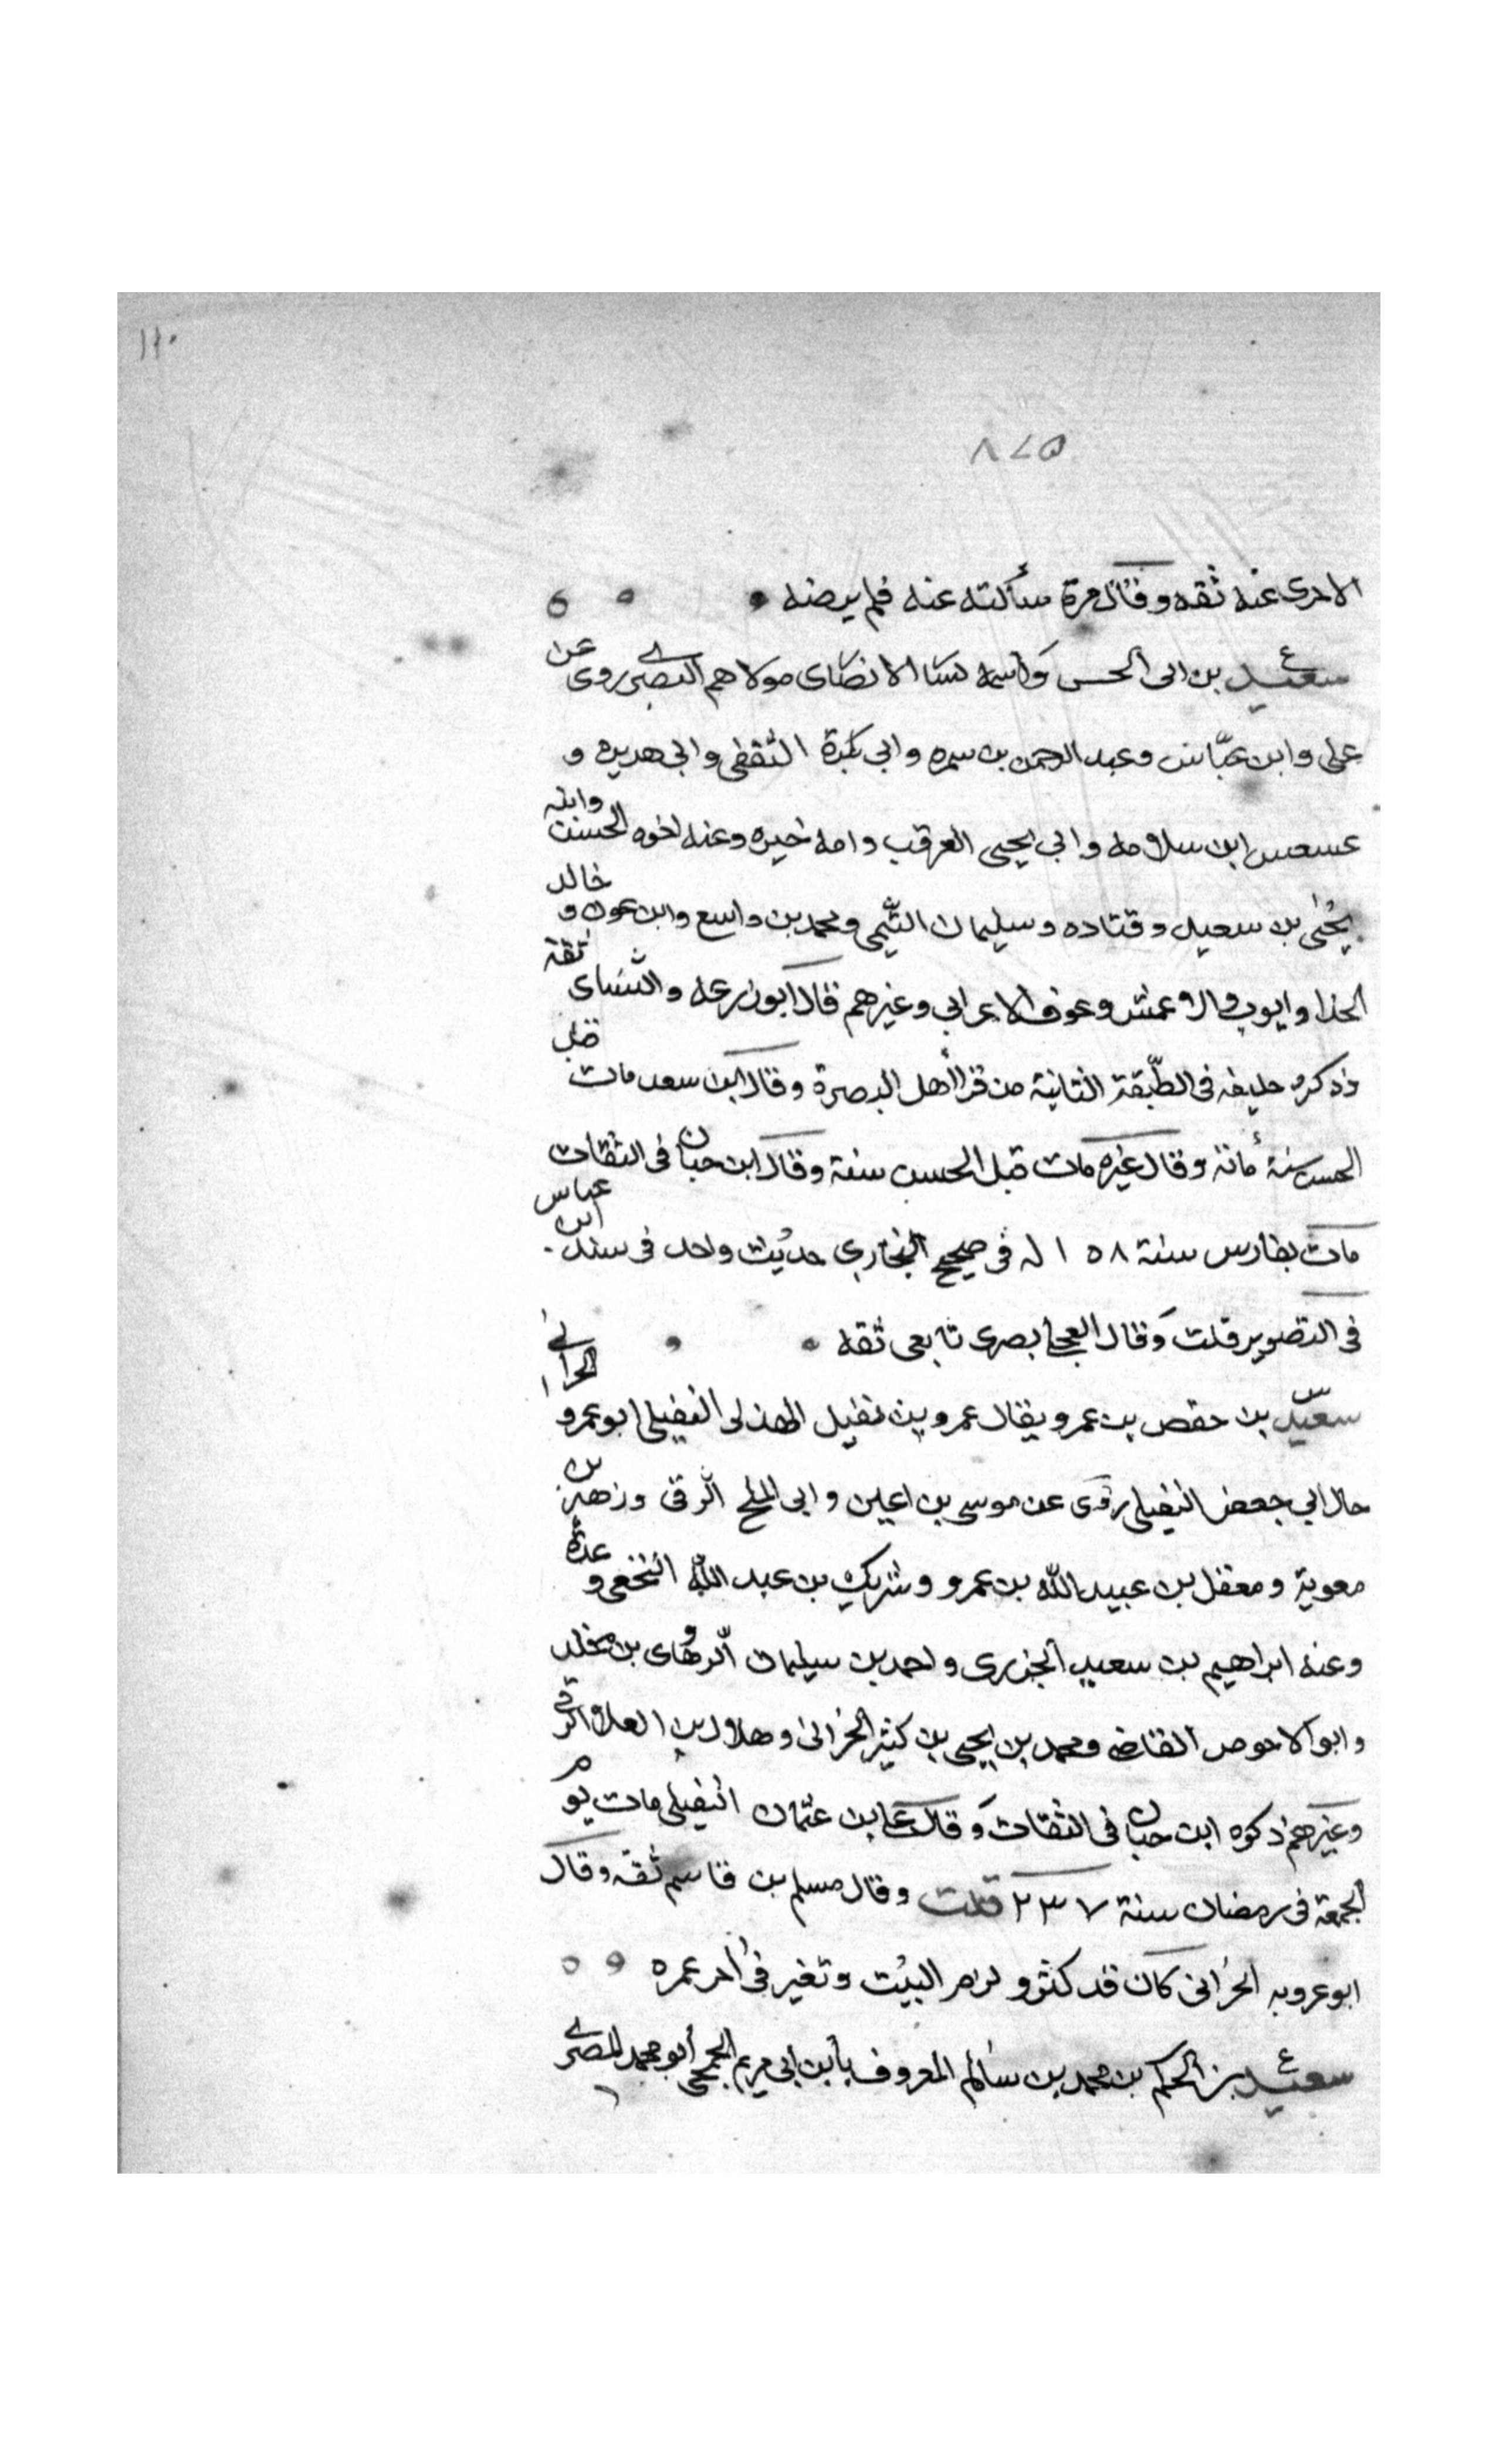 ١١٠
٥٧٨
الاجرى عنه ثقه وقال مرة سألته عنه فلم يرضه
سعيد بن ابى الحسن واسمه يسار الانصارى مولاهم البصرى روى عن
على وابن عباس وعبد الرحمن بن سمره وابي بكرة الثقفى وابي هريره و
عسعس ابن سلامه وابي يحيى المعرقب وامه خيره وعنه اخوه الحسن وابنه
يحيى بن سعيد وقتاده وسليمان التيمى ومحمد بن واسع وابن عون و خالد
الحذا وايوب والاعمش وعوف الاعرابي وغيرهم قال ابو زرعه والنساى ثقة
وذكره خليفه فى الطبقة الثانية من قرا أهل البصرة وقال ابن سعد مات قبل
الحسن سنة مائة وقال غيره مات قبل الحسن سنة وقال ابن حبان فى الثقات
مات بفارس سنة ١٥٨ له فى صحيح البخاري حديث واحد فى سند ابن عباس
فى التصوير قلت وقال العجلى بصرى تابعى ثقه
سعيد بن حفص بن عمرو يقال عمرو بن نفيل الهذلى النفيلى ابو عمرو الحرانى
خال ابي جعفر النفيلى روى عن موسى بن اعين وابى المليح الرقى وزهير بن
معوية ومعقل بن عبيد الله بن عمرو وشريك بن عبد الله النخعى و عدة
وعنه ابراهيم بن سعيد الجزرى واحمد بن سليمان الرهاوى بن مخلد
وابو الاحوص القاضى ومحمد بن يحيى بن كثير الحرانى وهلال بن العلا الرقى
وغيرهم ذكره ابن حبان فى الثقات وقال على ابن عثمان النفيلى مات يوم
الجمعة فى رمضان سنة ٢٣٧ قلت وقال مسلم بن قاسم ثقه وقال
ابو عروبه الحرانى كان قد كثر ولزم البيت وتغير فى أخر عمره
سعيد بن الحكم بن محمد بن سالم المعروف بابن ابى مريم الجمحى أبو محمد المصرى